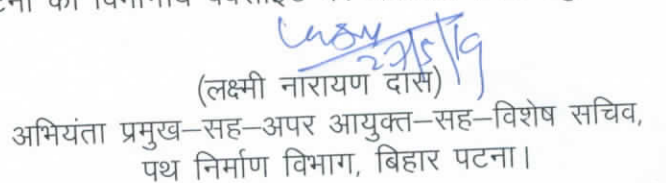 की विभागीय
27/5/19
(लक्ष्मी नारायण दास)
अभियंता प्रमुख–सह–अपर आयुक्त–सह–विशेष सचिव,
पथ निर्माण विभाग, बिहार पटना।